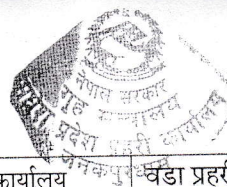 नेपाल सरकार
गृह मन्त्रालय
प्रदेश प्रहरी कार्यालय
जनकपुरधाम
कार्यालय
वडा प्रहरी